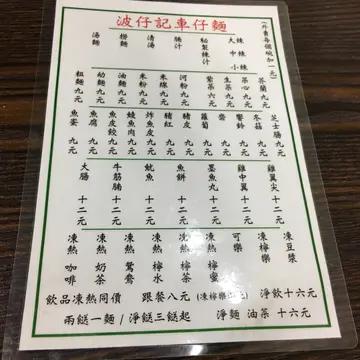 波仔記車仔麵
(外賣每個碗加一元)
大辣
中辣
小辣
秘製辣汁
腩汁
清湯
撈麵
湯麵
芥蘭九元
菜心九元
生菜九元
紫菜六元
河粉九元
米線九元
米粉九元
油麵九元
幼麵九元
粗麵九元
芝士腸九元
冬菇九元
響鈴九元
齋九元
蘿蔔九元
豬皮九元
豬紅九元
炸魚皮九元
鯪魚肉九元
魚皮餃九元
魚腐九元
魚蛋九元
雞翼尖十二元
雞中翼十二元
墨魚丸十二元
魚餅十二元
魷魚十二元
牛筋腩十二元
大腸十二元
凍豆漿
凍檸樂
可樂
凍熱檸蜜
凍熱檸茶
凍熱檸水
凍熱鴛鴦
凍熱奶茶
凍熱咖啡
飲品凍熱同價 跟餐八元 (凍檸樂 淨飲十六元
兩餸一麵/淨餸三餸起 淨麵 油菜 十六元